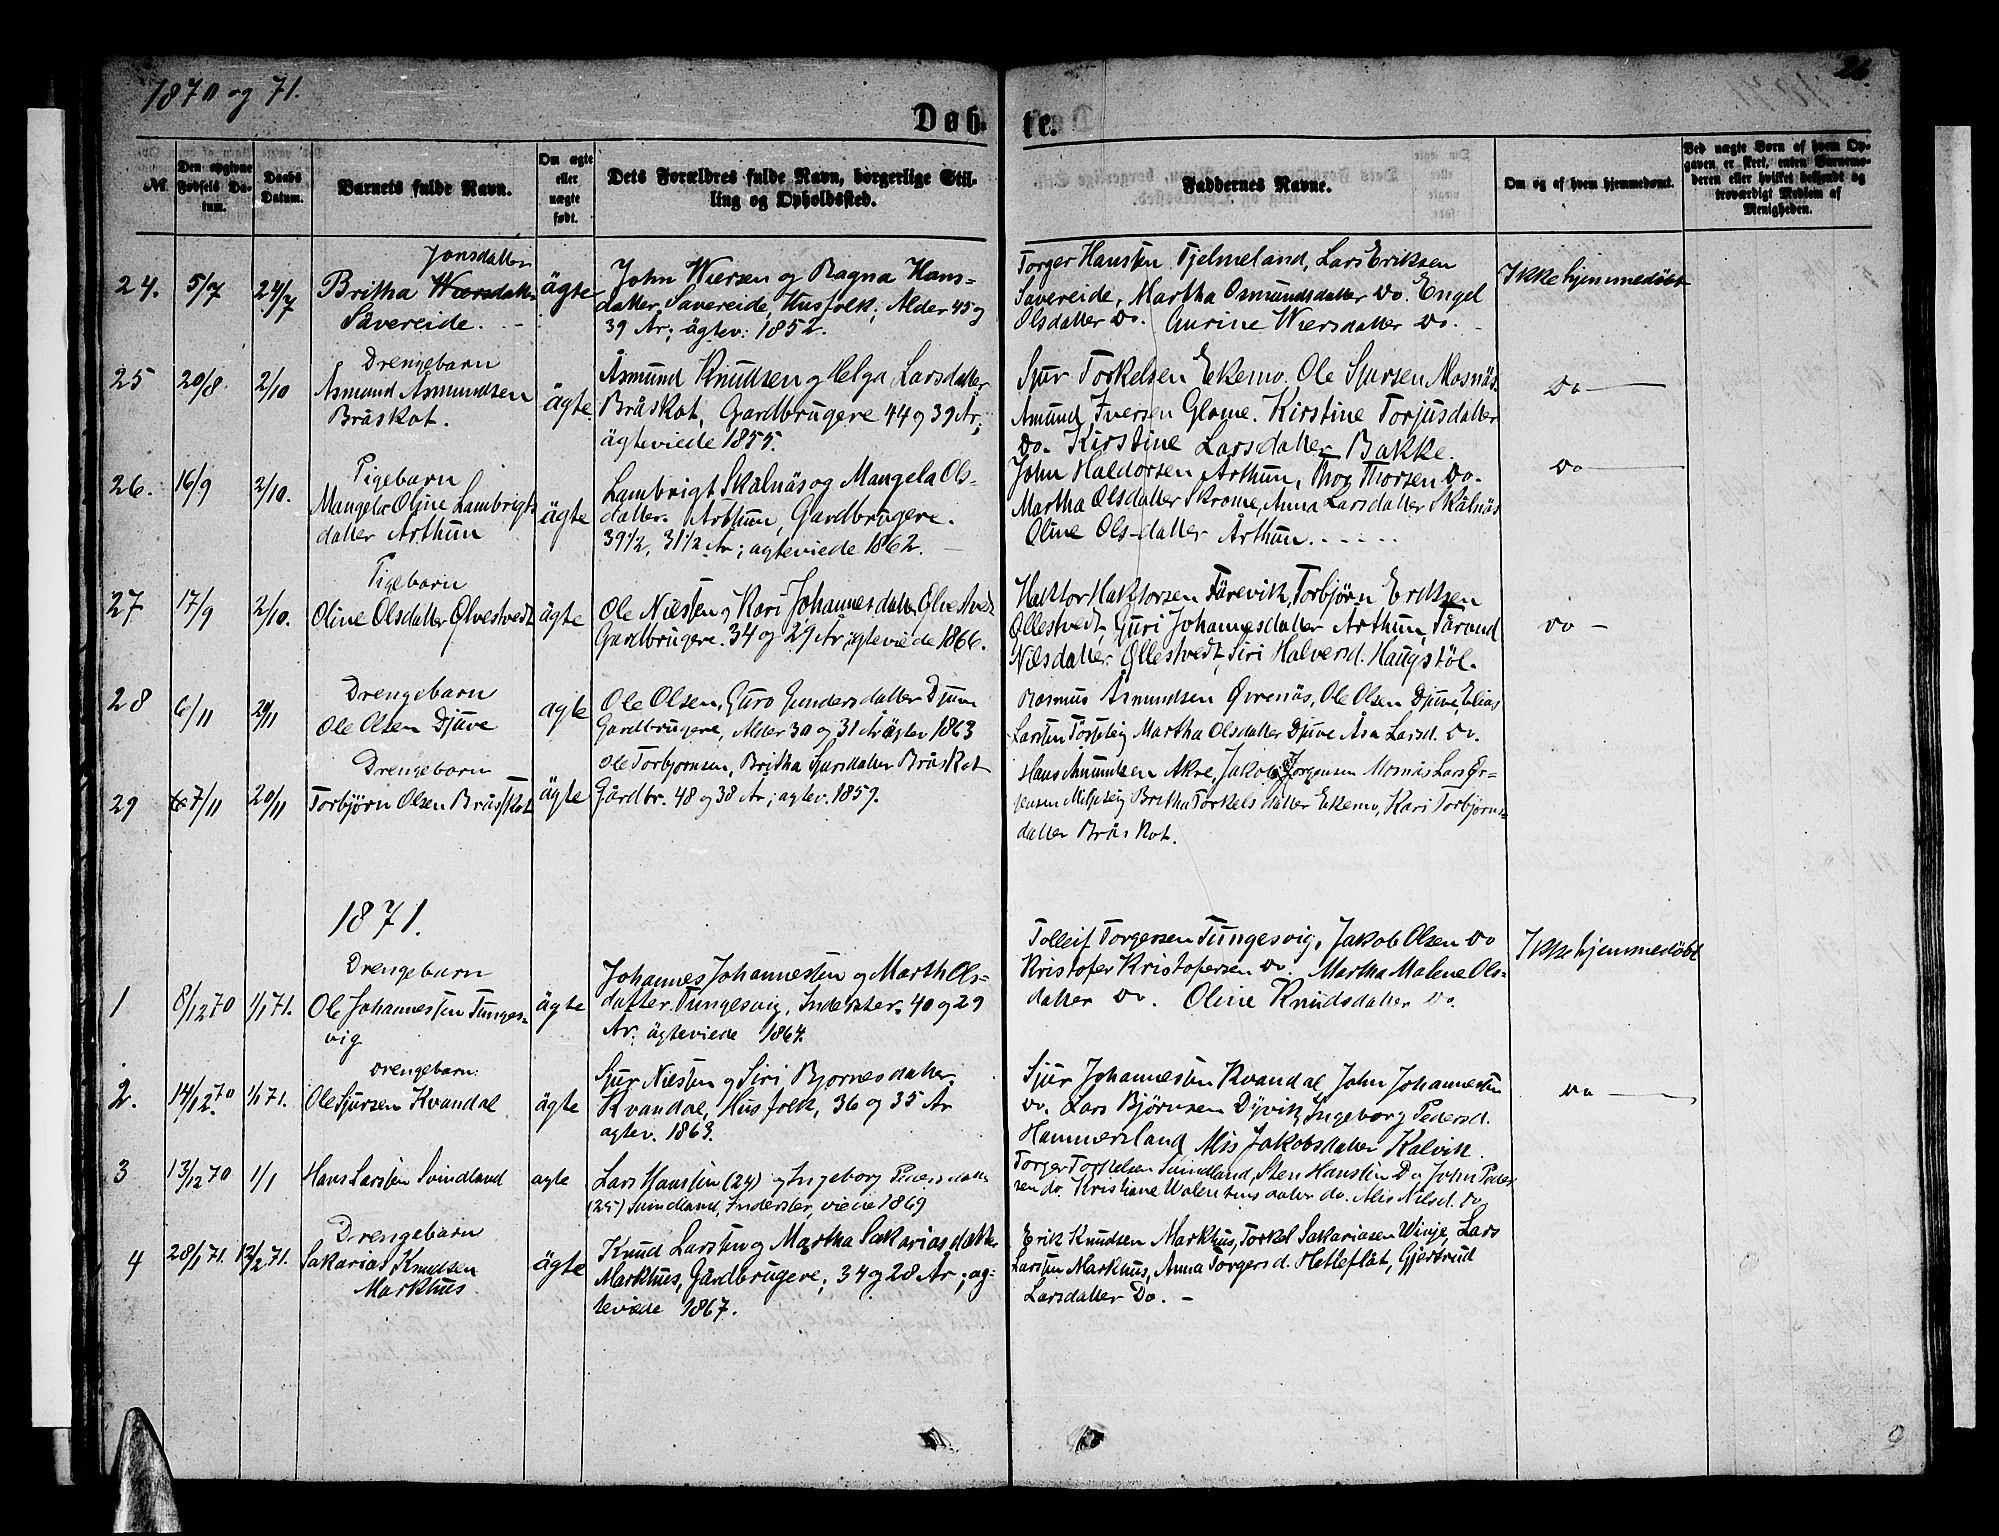 1870 og 71.
26
Døb-
te.
№.
Den opgivne Fødsels Datum.
Daabs Datum.
Barnets fulde Navn.
Om ægte eller uægte født.
Dets Forældres fulde Navn, borgerlige Stilling og Opholdssted.
Faddernes Navne.
Om og af hvem hjemmedøbt.
Ved uægte Børn af hvem Opgaven er skeet, enten Barnemoderen eller hvilket bekjendt og troværdigt Medlem af Menigheden.
24.
5/7
24/7
Jonsdatter
Britha Wiersdatter
Sävereide.
ägte
John Wiersen og Ragna Hans-
datter Sävereide, Husfolk; Alder 45 og
39 År; ägtev: 1852.
Torger Hansten Tjelmeland, Lars Eriksen
Sävereide, Martha Osmundsdatter Do. Engel
Olsdatter Do. Aurine Wiersdatter Do.
Ikke hjemmedöbt
25
20/8.
2/10
Drengebarn
Åsmund Åsmundsen
Bråskot.
ägte
Åsmund Knudsen og Helga Larsdatter
Bråskot, Gardbrugere 44 og 39 År;
ägteviede 1855.
Sjur Torkelsen Ekemo, Ole Sjursen Mosnäs
Amund Iversen Glame. Kirstine Torjusdatter
Do. Kirstine Larsdatter Bakke.
Do
26.
16/9
2/10.
Pigebarn
Mangela Oline Lambrigts
datter Arthun
ägte
Lambrigt Skålnäs og Mangela Ols-
datter. Arthun, Gardbrugere.
39 1/2, 31 1/2 År; agteviede 1862.
John Haldorsen Arthun, Thor Thorsen Do.
Martha Olsdatter Skrome, Anna Larsdatter Skålnäs
Oline Olsdatter Årthun.
Do
27
17/9
2/10.
Pigebarn
Oline Olsdatter Ølvestvedt
ägte
Ole Nilsten og Kari Johannesdatter Ølvestvedt
Gardbrugere. 34 og 29 År; ägteviede 1866.
Haktor Haktorsen Tärevik, Torbjörn Eriksen
Øllestvedt, Guri Johannesdatter Arthun, Tårand
Nilsdatter Øllestvedt, Siri Halversd. Haugstöl.
Do
28
6/11
20/11
Drengebarn
Ole Olsen Djuve
agte
Ole Olsen, Guro Gundersdatter Djuve
Gardbrugere, Alder 30 og 31 År ägtev 1863
Rasmus Åsmundsen Øvrenäs, Ole Olsen Djuve, Elias
Larsten Martha Olsdatter Djuve Åsa Larsd. Do.
29
7/11
20/11
Drengebarn
Torbjörn Olsen Bråskot
ägte
Ole Torbjornsen, Britha Sjursdatter Bråskot
Gårdbr. 48 og 38 År; agtev. 1859.
Hans Amundsen Akre, Jakob Jörgensen Mosnäs Lars Ør-
jensen Britha Torkelsdatter Ekemo, Kari Torbjorns-
datter Bråskot.
1871.
1
8/12 70
1/1 71.
Drengebarn
Ole Johannesten Tunges-
vig
ägte
Johannes Johannesten og Marth Ols-
datter Tungesvig, Inderster. 40 og 29
År; ägteviede 1864.
Tolleif Torgersen Tungesvig, Jakob Olsen Do
Kristofer Kristofersen Do. Martha Malene Ols-
datter Do. Oline Knudsdatter Do.
Ikke hjemmedöbt
2.
14/12 70
1/1 71.
Drengebarn:
Ole Sjursen Kvandal
ägte
Sjur Nilsten og Siri Bjornesdatter
Kvandal, Husfolk, 36 og 35 År
agtev. 1863.
Sjur Johannesten Kvandal, John Johannesten
Do. Lars Bjørnsen Dyvik, Ingeborg Pedersd.
Hammersland Alis Jakobsdatter Kalvik.
Do
3
13/12 70
1/1
Hans Larsten Svindland
agte
Lars Hansten (24) og Ingeborg Pedersdatter
(25) Svindland, Inderster, viede 1869
Torger Torkelsen Svindland, Sten Hansten Do John Peder
sen do. Kristiane Walentinsdatter do. Alis Nilsd. Do
4
28/1 71.
12/2 71.
Drengebarn
Sakarias Knudsen
Markhus
ägte
Knud Larsten og Martha Sakariasdatter
Markhus, Gårdbrugere; 34 og 28 År; äg-
teviede 1867.
Erik Knudsen Markhus, Torkel Sakariasen Winje, Lars
Larsten Markhus, Anna Torgersd. Hetleflåt, Gjertrud
Larsdatter Do.